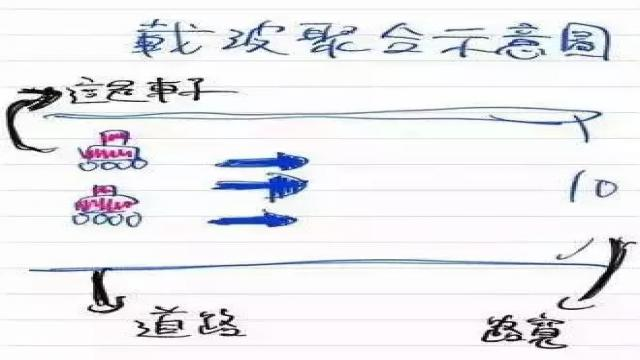 載波聚合示意圖
這是車子
10
道路
路寬